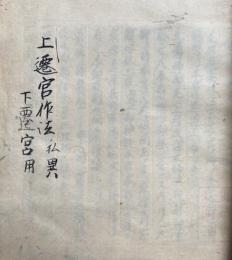 上遷宮作法 私異
下遷宮用